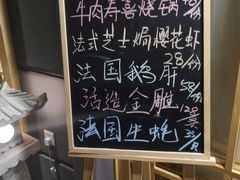 牛肉寿喜烧锅
法式芝士焗樱花虾
28/份
法国鹅肝
58/份
活造金雕
128
法国生蚝
35/只